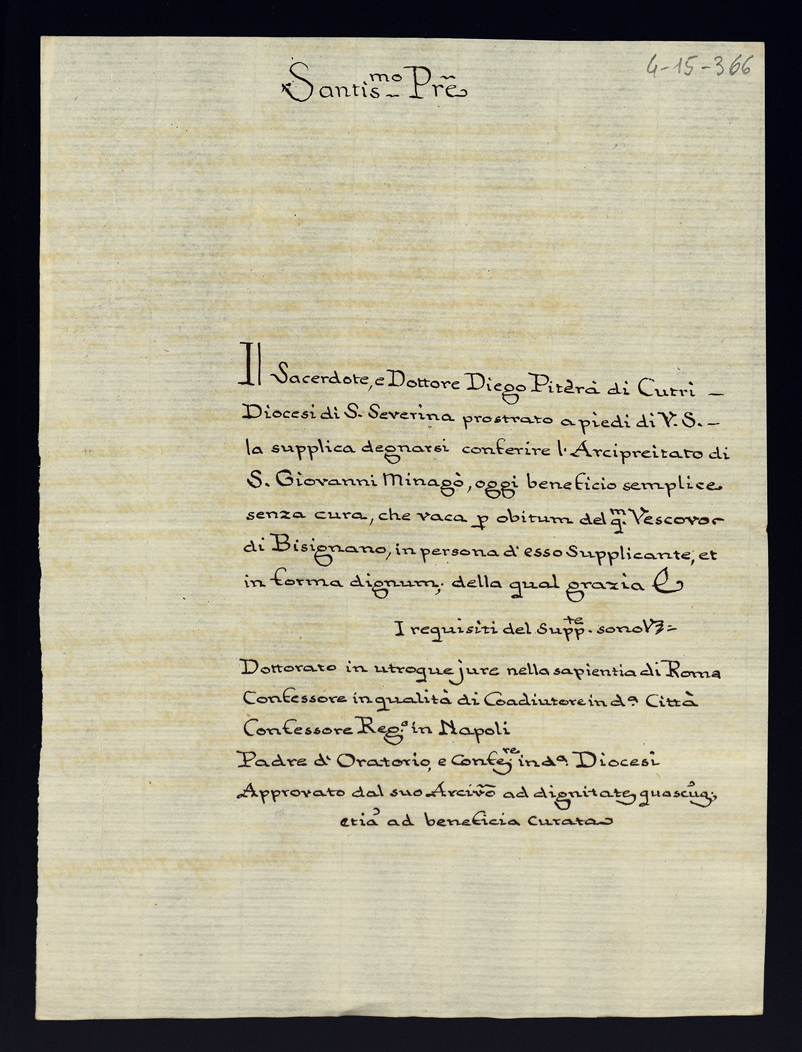 4-15-366
Santis.mo Prẽ
Il Sacerdote, e Dottore Diego Piterà di Cutri –
Diocesi di S. Severina prostrato a piedi di V. S. –
la supplica degnarsi conferire l'Arcipreitato di
S. Giovanni Minagò, oggi beneficio semplice
senza cura, che vaca p obitum del q.m Vescovo
di Bisignano, in persona d'esso Supplicante, et
in forma dignum; della qual grazia
I requisiti del Supp.te sono Vz=
Dottorato in utroque jure nella sapientia di Roma
Confessore in qualità di Coadiutore in d.a Città
Confessore Reg.o in Napoli
Padre d'Oratorio, e Confes.re in d.a Diocesi
Approvato dal suo Arciv.o ad dignitates quascũq;,
etiã ad beneficia curata